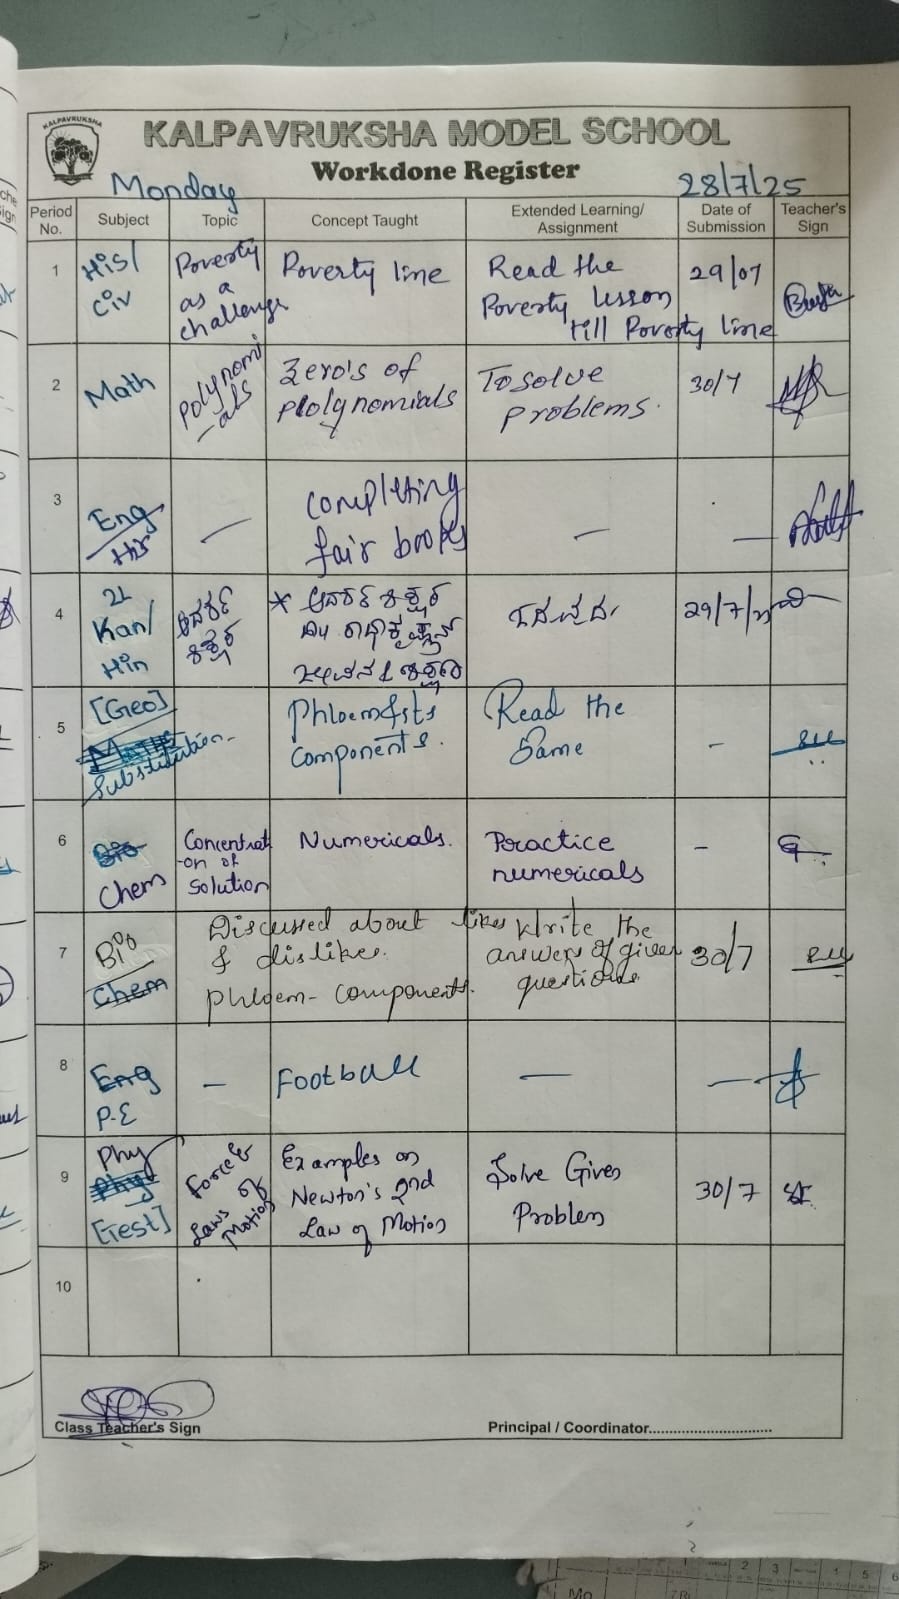 KALPAVRUKSHA
KALPAVRUKSHA MODEL SCHOOL
Workdone Register
Monday 28/7/25
Period No. Subject Topic Concept Taught Extended Learning/ Assignment Date of Submission Teacher's Sign
1 His/ Civ Poverty as a challenge Poverty line Read the Poverty lesson till Poverty line 29/07
2 Math Polynomi -als Zero's of Plolynomials To solve problems. 30/7
3 Eng/ His — Completing fair books — —
4 2L Kan/ Hin ಆದರ್ಶ ಶಿಕ್ಷಕ * ಆದರ್ಶ ಶಿಕ್ಷಕ 29/7/
5 [Geo] Substitution Phloem & its components. Read the Same -
6 Bio Chem Concentrat -on of Solution Numericals. Practice numericals -
7 Bio Chem Discussed about likes & dislikes. Phloem - components. Write the answers of given questions 30/7
8 Eng P.E — Football — —
9 Phy Phy [Test] Force & Laws of Motion Examples on Newton's 2nd Law of Motion Solve Given Problem 30/7
10
Class Teacher's Sign Principal / Coordinator..............................